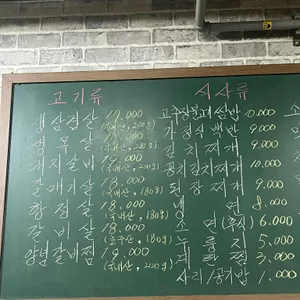 고기류
생삼겹살 17.000
(국내산, 200g)
생목살
(국내산, 200g)
돼지갈비 19.000
(국내산, 200g)
18.000
(국내산, 180g)
항정살 18.000
(국내산, 180g)
갈비살 18.000
(호주산, 180g)
양념갈비찜 19.000
(국내산, 200g)
식사류
고추장불고기쌈밥 10.000
가정식백반 9.000
김치찌개 9.000
꽁치김치찌개 10.000
된장찌개 9.000
냉면 8.000
소면(후식) 6.000
누룽지 5.000
계란찜 3.000
사리/공기밥 1.000